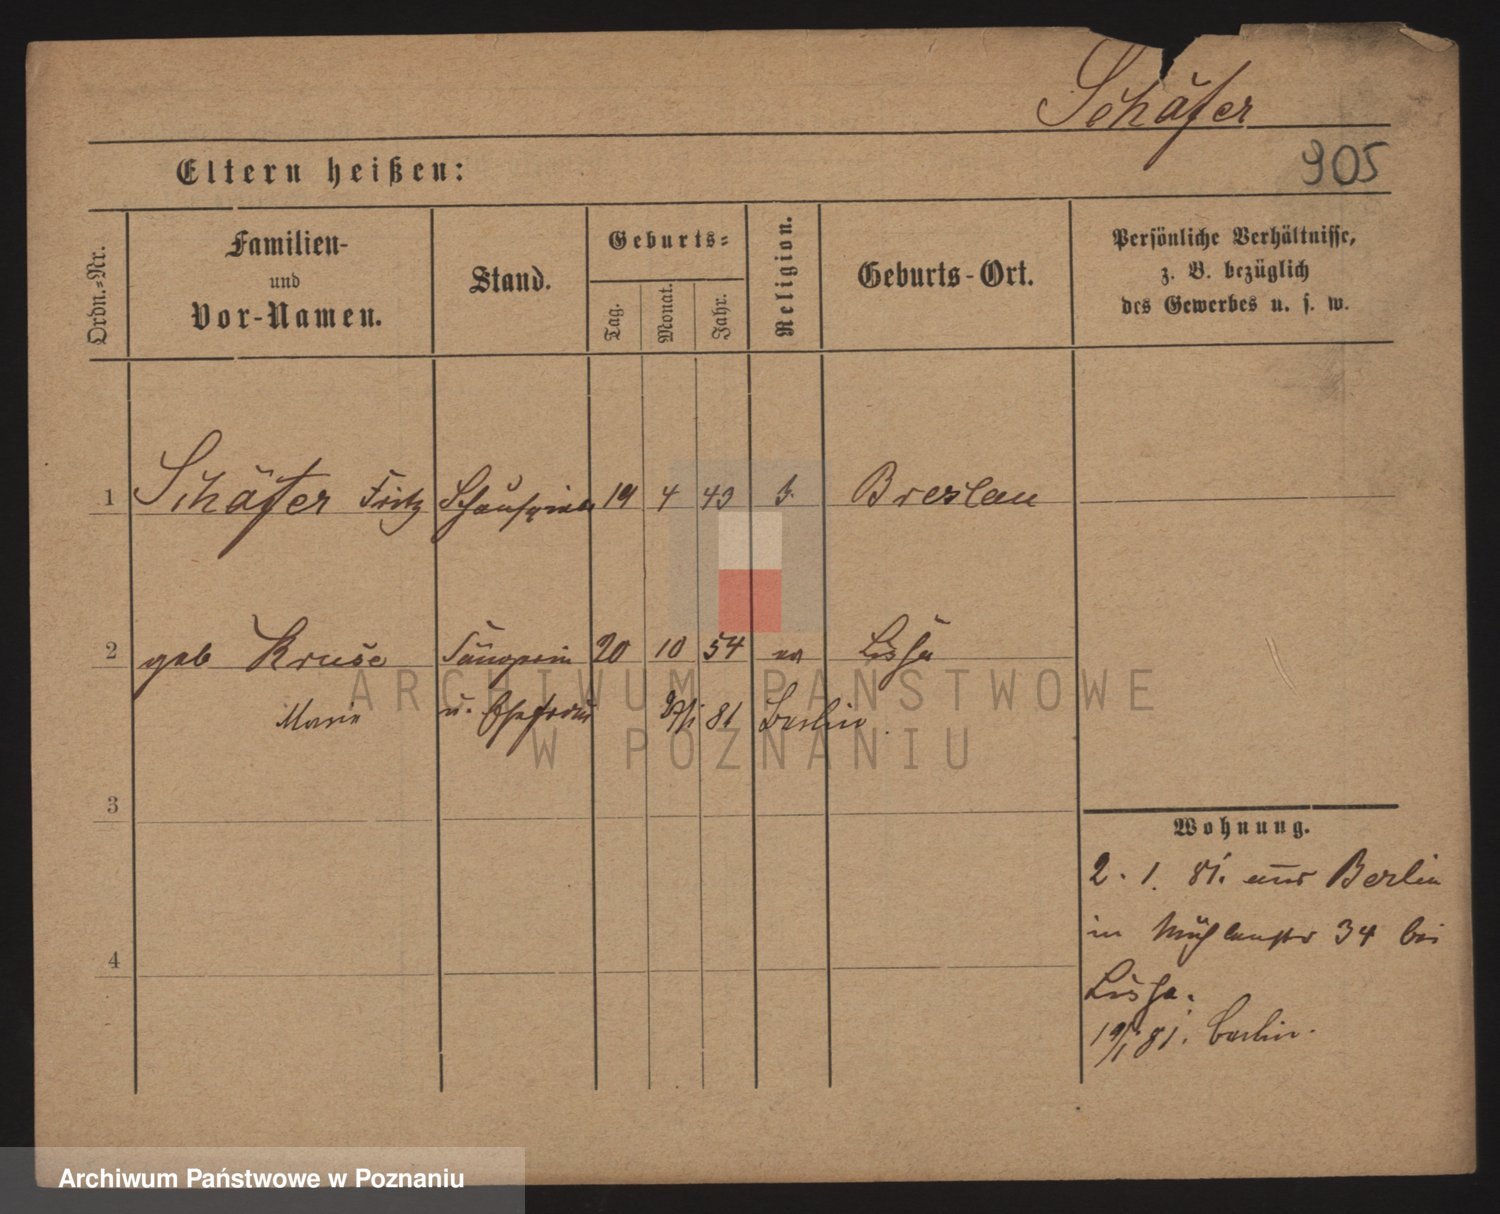 Schäfer
905
Eltern heißen:
Ordn.-Nr.
Familien-
und
Vor-Namen.
Stand.
Geburts-
Tag.
Monat.
Jahr.
Religion.
Geburts-Ort.
Persönliche Verhältnisse,
z. B. bezüglich
des Gewerbes u. s. w.
1 Schäfer Fritz Schauspieler 19 4 43 Breslau
2 geb Kruse 20 10 54 ev Lissa
Marie u. Ehefrau 81 Berlin.
3
4
Wohnung.
2. 1. 81. aus Berlin
in Mühlenstr 34 bei
Lissa.
19/1 81. Berlin.
ARCHIWUM PAŃSTWOWE
W POZNANIU
Archiwum Państwowe w Poznaniu